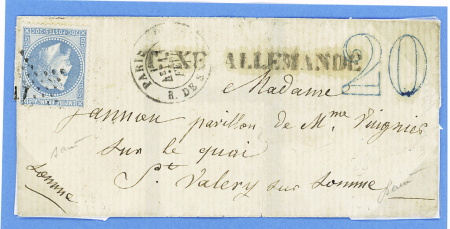 TAXE ALLEMANDE
20
PARIS
R. DE S
Madame
Jannon pavillon de Mme Vuignier
sur le quai
St Valery sur Somme
Somme